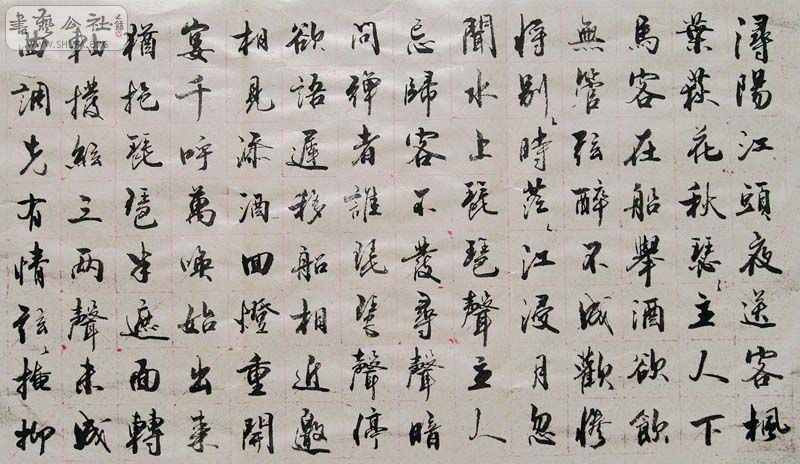 潯陽江頭夜送客楓
葉荻花秋瑟々主人下
馬客在船舉酒欲飲
無管弦醉不成歡慘
将別々時茫々江浸月忽
聞水上琵琶聲主人
忘歸客不發尋聲暗
問彈者誰琵琶聲停
欲語遲移船相近邀
相見添酒回燈重開
宴千呼萬喚始出來
猶抱琵琶半遮面轉
軸撥絃三兩聲未成
曲調先有情弦々掩抑
書藝公社